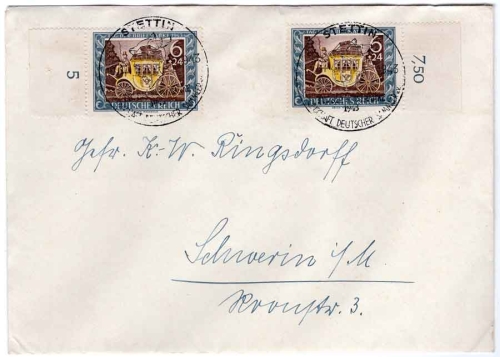 STETTIN
STETTIN
6+24
6+24
DEUTSCHES REICH
DEUTSCHES REICH
5
7,50
1943
DEUTSCHER
Gefr. K.-W. Ringsdorff
Schwerin i/M
Roonstr. 3.